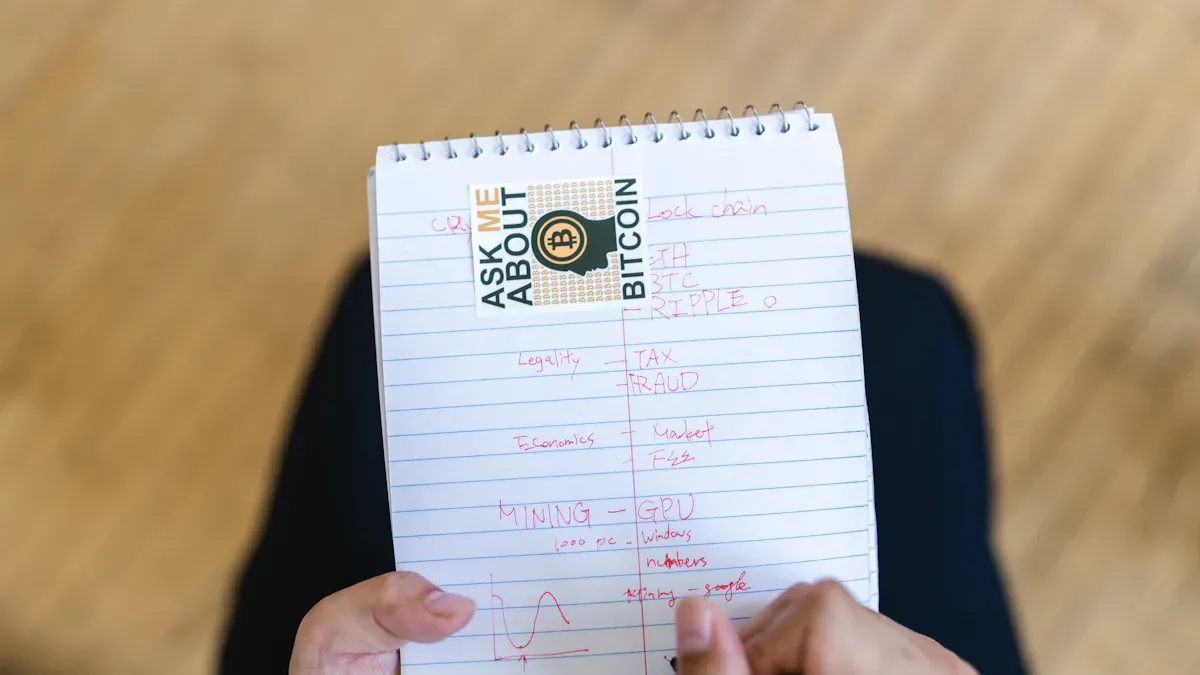 ASK ME
ABOUT
BITCOIN
lock chain
TH
BTC
- RIPPLE o
Legality - TAX
- FRAUD
Economics - Market
- Fee
MINING - GPU
1,000 pc - windows
numbers
- google